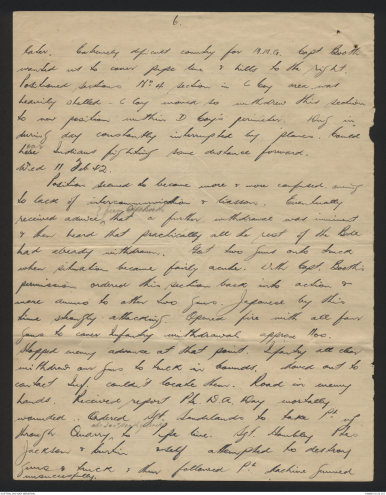 6.
later. Extremely difficult country for M.M.G. Capt. Booth
wanted us to cover pipe line & hills to the right.
Positioned sections No 4 section in C Coy area was
heavily shelled - C Coy moved so withdrew this section
to new position within D Coy's perimeter. Dug in
during day constantly interrupted by planes. Could
hear Indians fighting some distance forward.
Wed 11 Feb 42.
Position seemed to become more & more confused owing
to lack of intercommunication & liaison. Eventually
received advice that a further withdrawal was imminent
& then heard that practically all the rest of the Bde
had already withdrawn. Got two guns onto truck
when situation became fairly acute. With Capt. Booth's
permission ordered this section back into action &
more ammo to other two guns. Japanese by this
time strongly attacking. Opened fire with all four
guns to cover Infantry withdrawal approx
Stopped enemy advance at that point. Infantry all clear
withdrew our guns to truck in bounds. Moved out to
contact Inf couldn't locate them. Road in enemy
hands. Received report Pte D.A. Way mortally
wounded. Ordered Sgt. Sandilands to take Pl
through Quarry to pipe line. Sgt Hambley Ptes
Jackson & & self attempted to destroy
guns & truck & then followed Pl. Machine gunned
unsuccessfully.